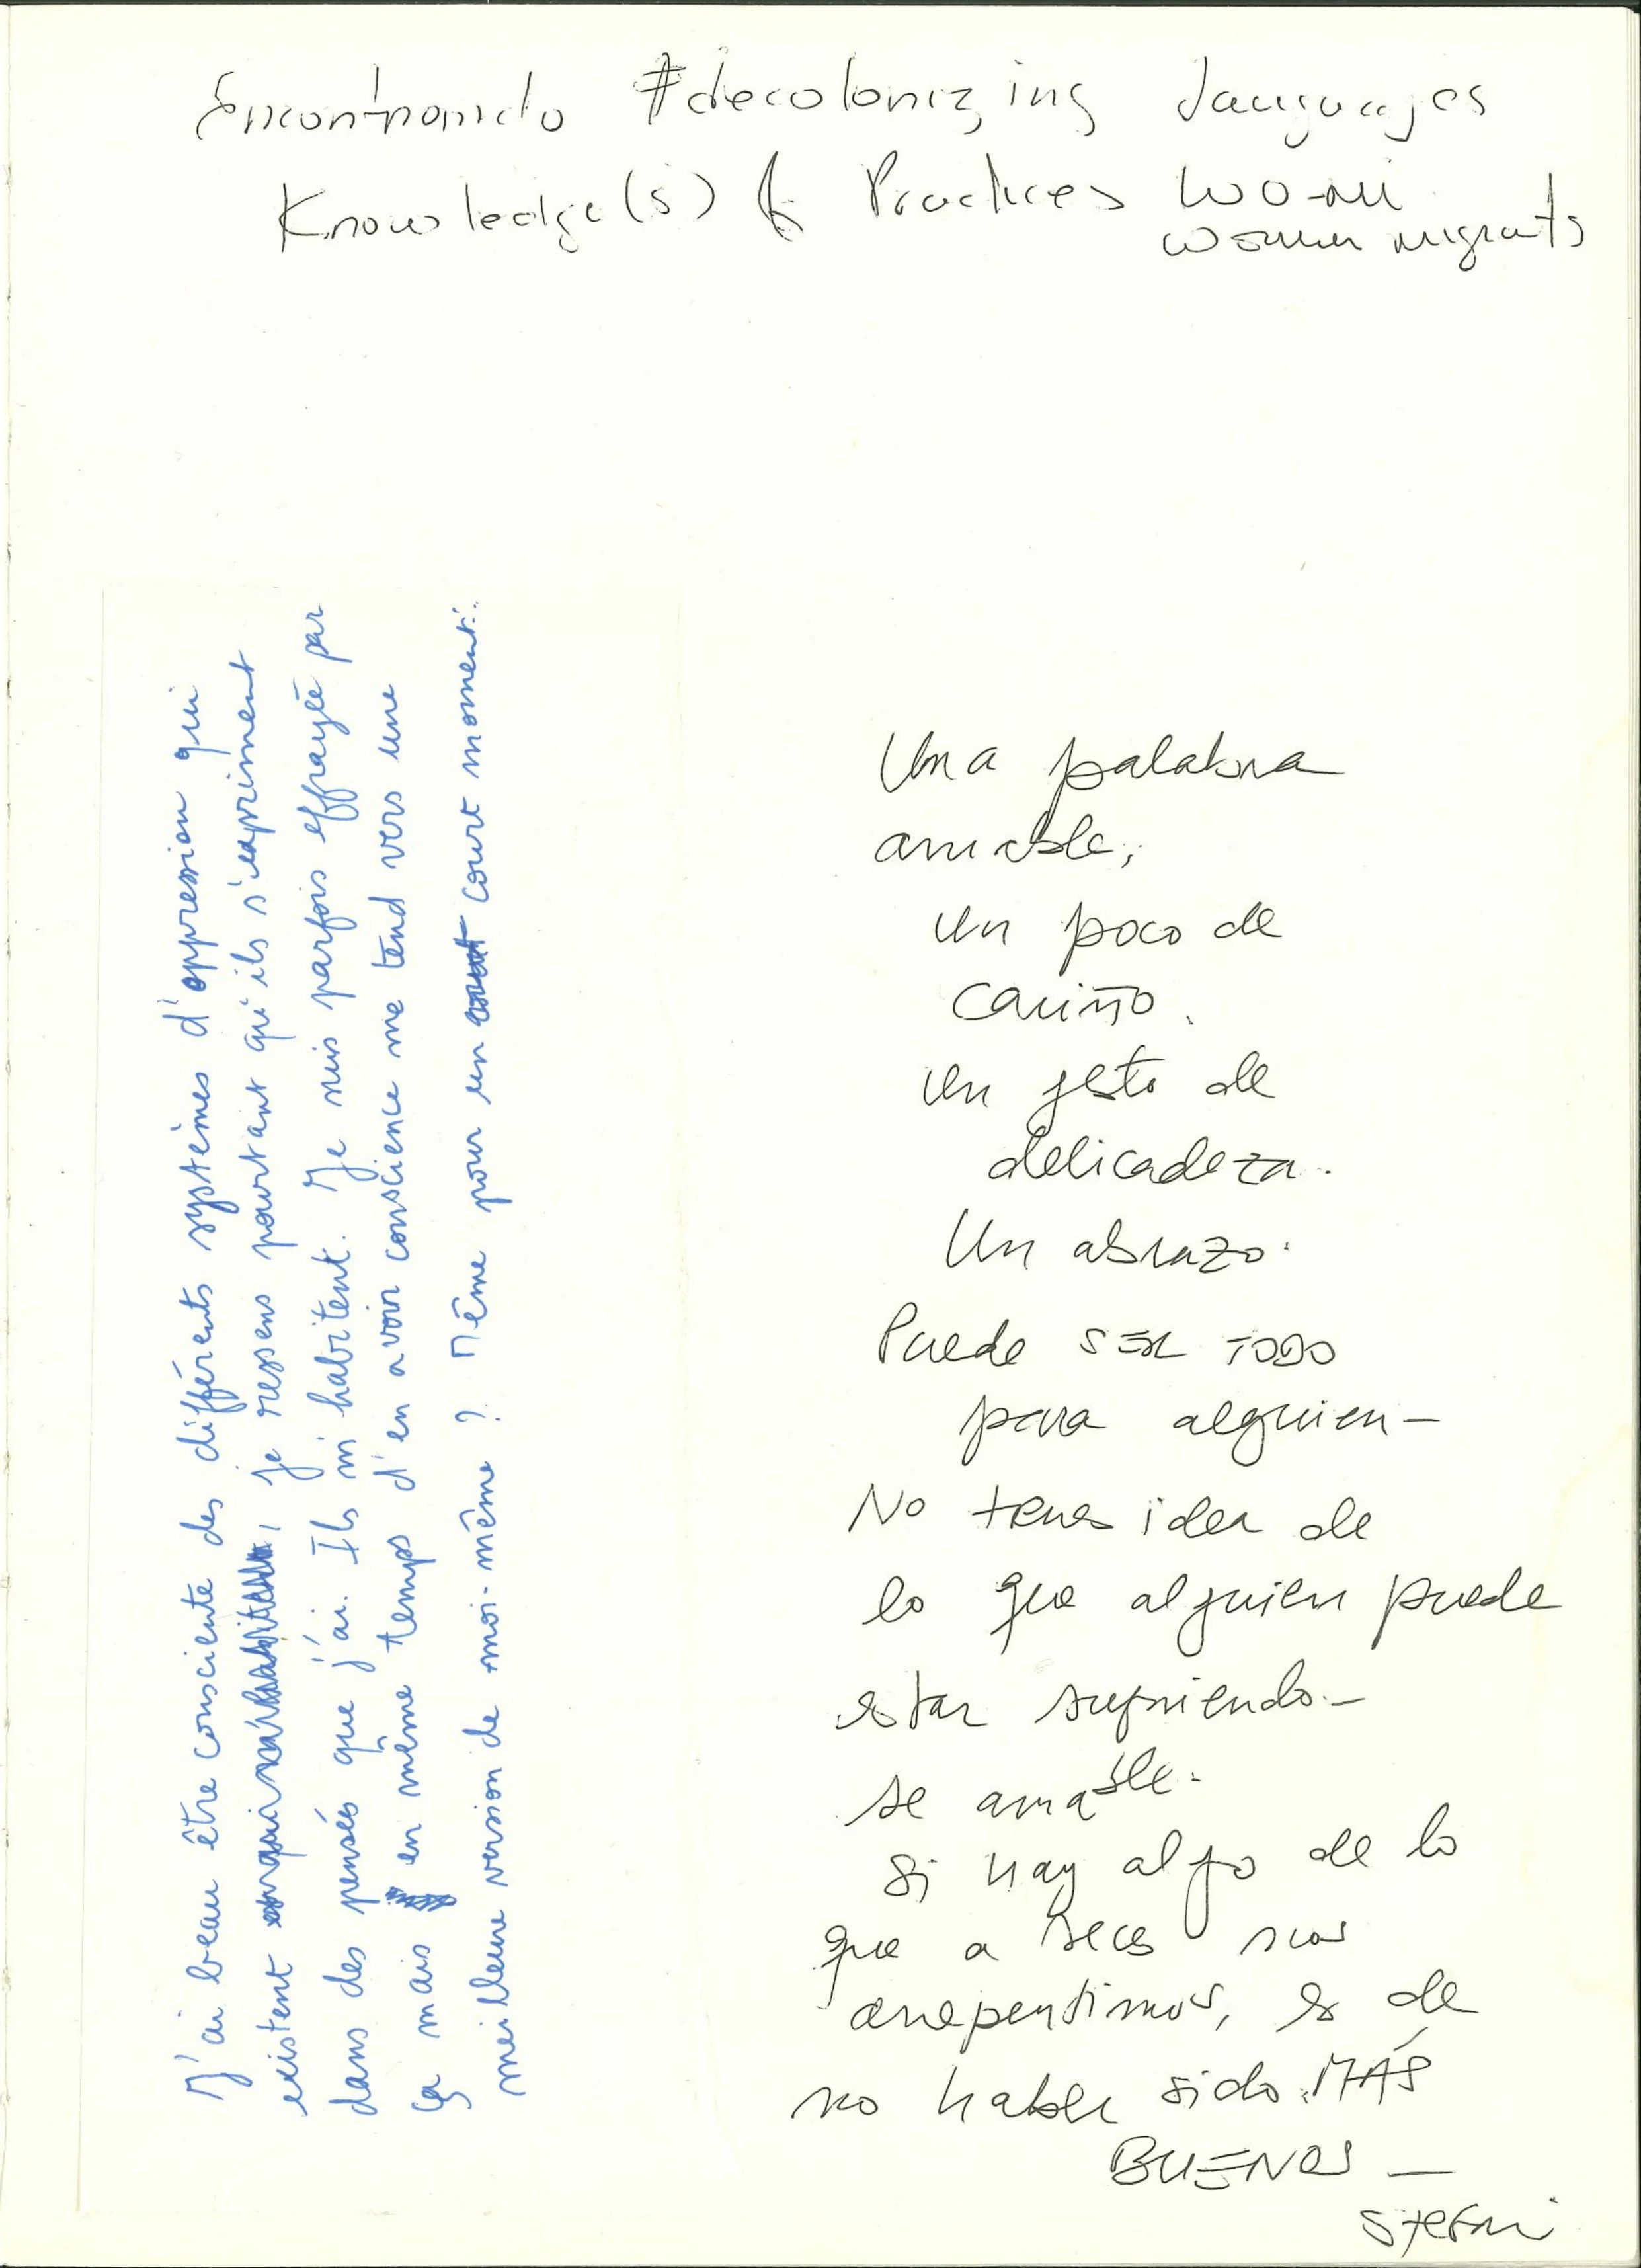 Encontrando #decolonizing languages
Knowledge(s) & Practices wo-mi
women migrants
J'ai beau être consciente des différents systèmes d'oppression qui
existent, je ressens pourtant qu'ils s'expriment
dans des pensées que j'ai. Ils m'habitent. Je suis parfois effrayée par
ça mais en même temps d'en avoir conscience me tend vers une
meilleure version de moi-même ? Même pour un court moment.
Una palabra
amable,
un poco de
cariño.
un gesto de
delicadeza.
Un abrazo.
Puede SER TODO
para alguien-
No tenes idea de
lo que alguien puede
estar sufriendo.-
se amable.
Si hay algo de lo
que a veces nos
arrepentimos, es de
no haber sido MÁS
BUENOS -
Stefni